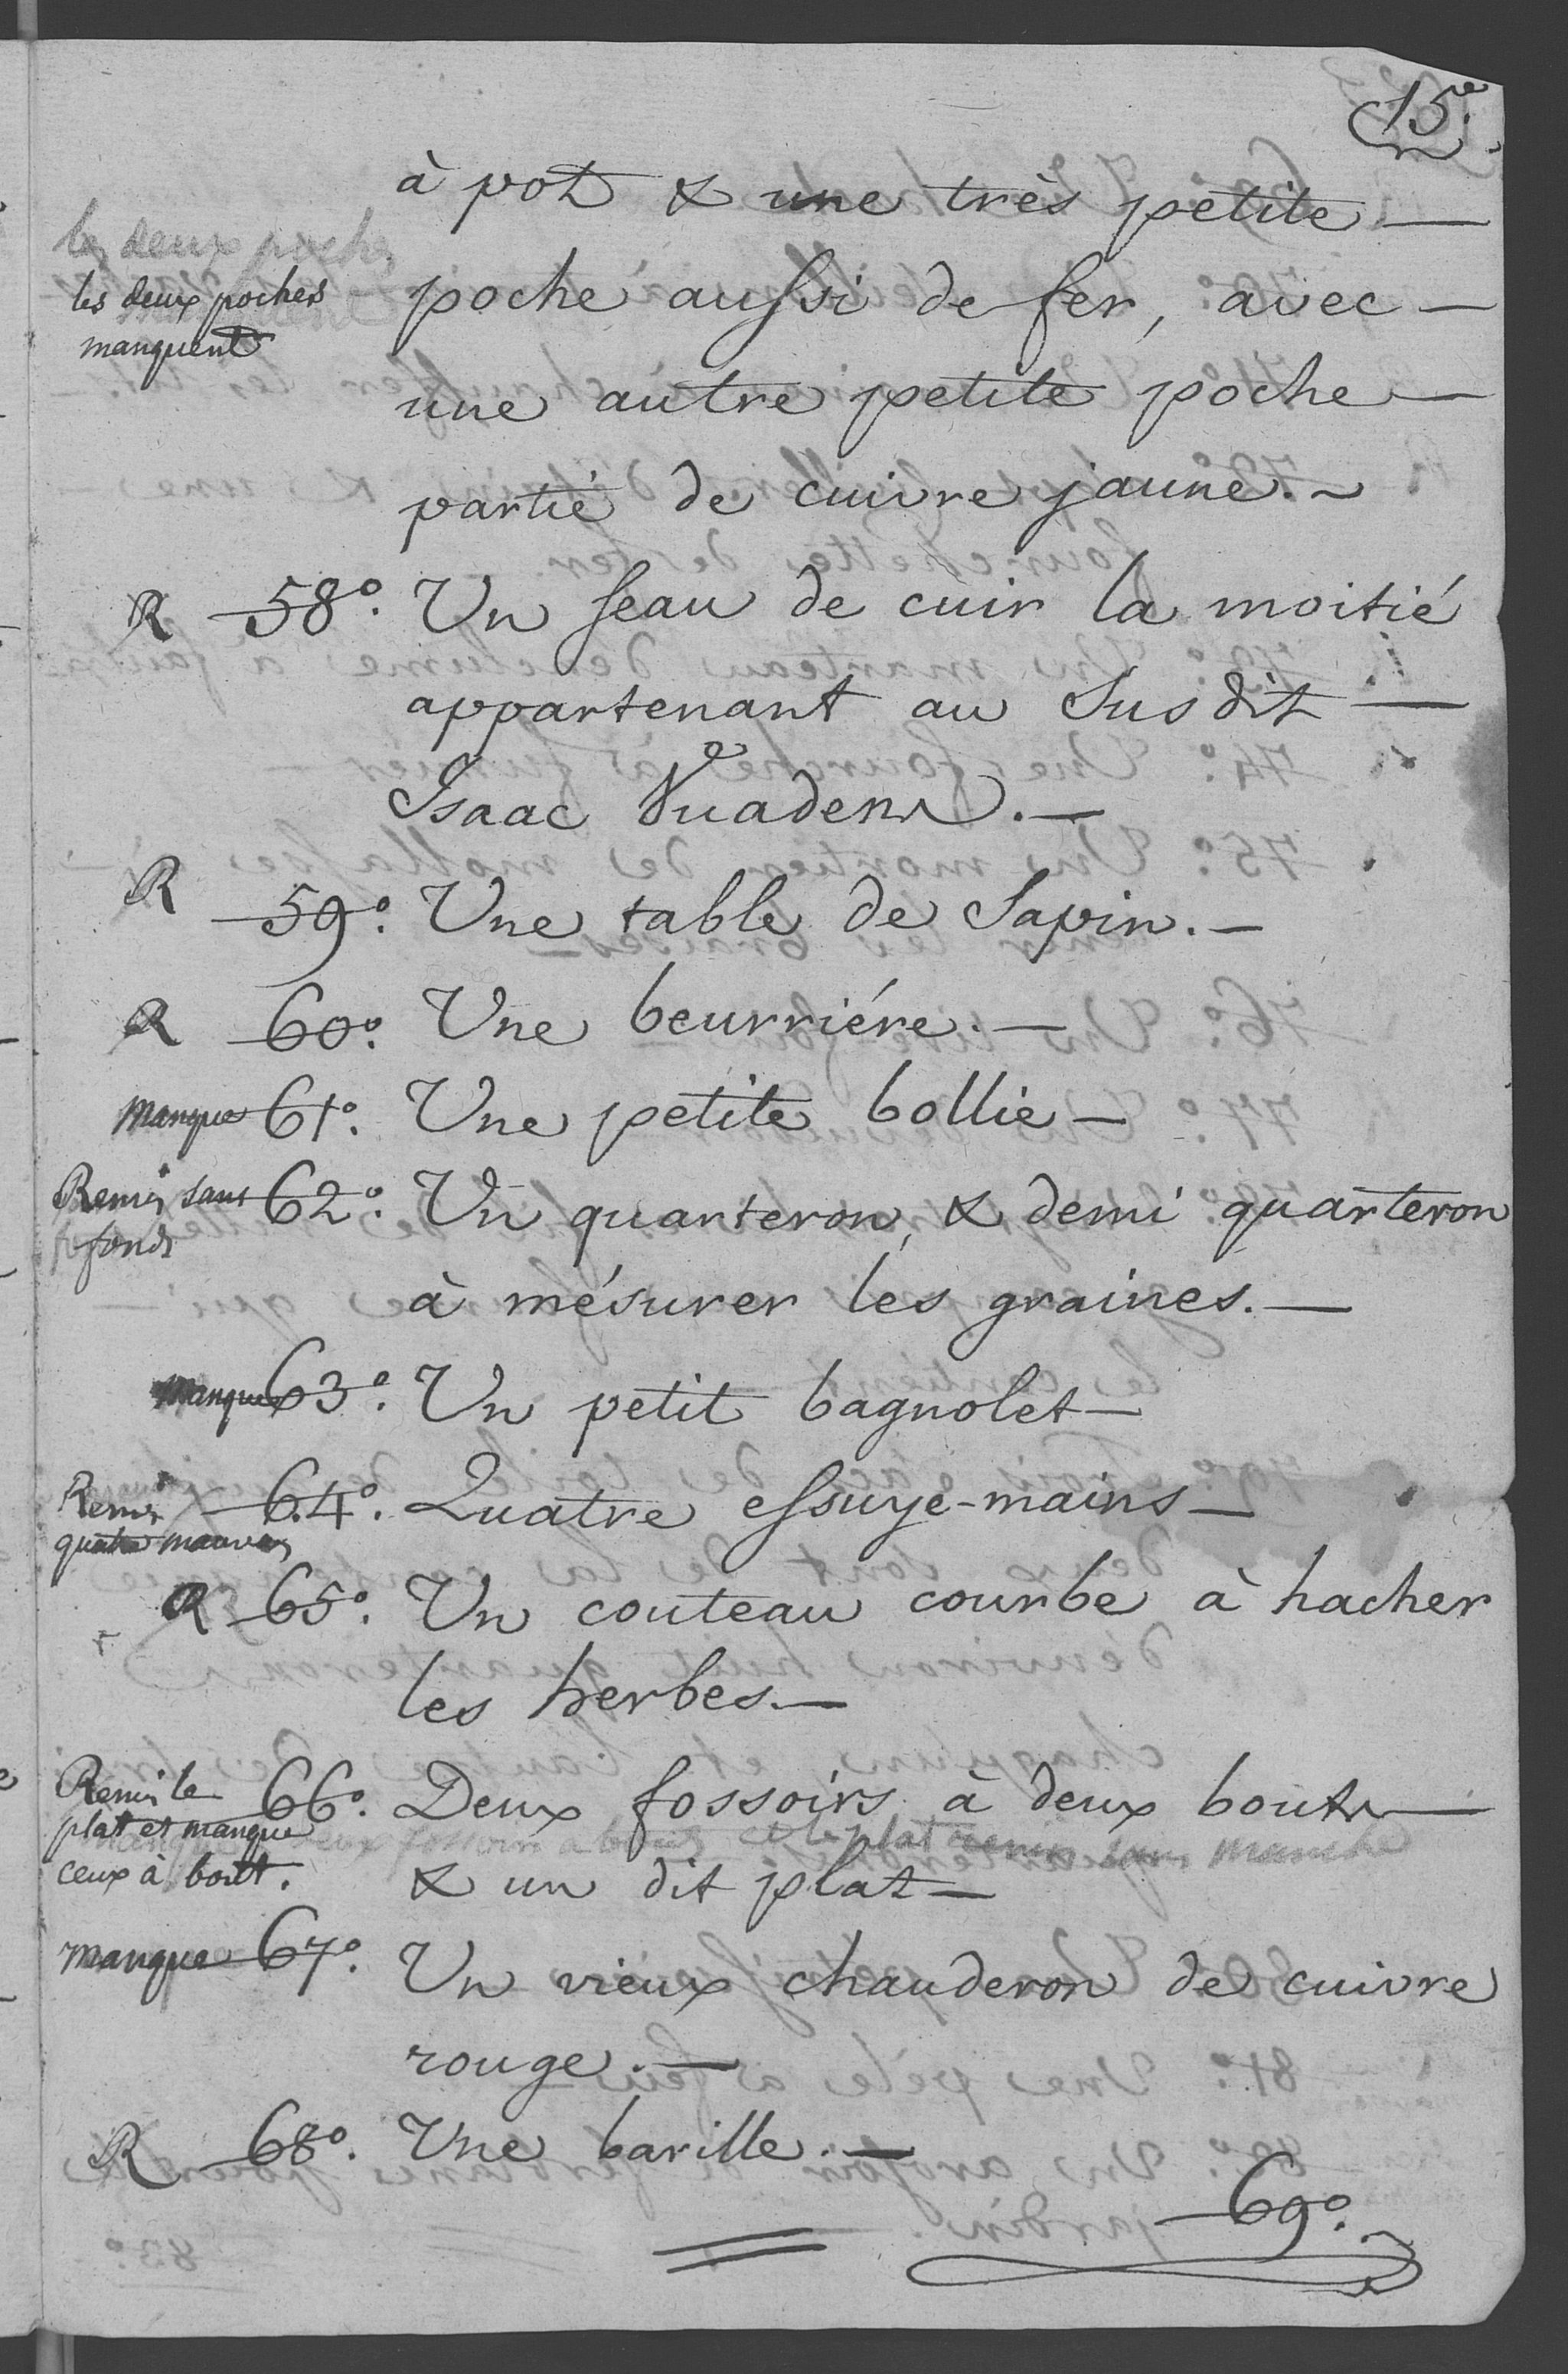 15e.
à pot & une très petite —
les deux poches
les deux poches
manquent
poche aussi de fer, avec —
une autre petite poche —
partie de cuivre jaune. ~
R 58°. Un seau de cuir la moitié
appartenant au Susdit —
Isaac Vuadens. —
R 59°. Une table de Sapin. —
R 60°. Une beurriére. —
manque 61°. Une petite bollie —
Remis sans 62°. Un quarteron, & demi quarteron
fonds
à mésurer les graines. —
manque 63°. Un petit bagnolet —
Remis 64°. Quatre essuye-mains —
quatre mauvais
R 65°. Un couteau courbe à hacher
les herbes. —
Remis le 66°. Deux fossoirs à deux bouts —
plat et manque
plat remis sans manche
ceux à bout. & un dit plat —
manque 67°. Un vieux chauderon de cuivre
rouge. —
R 68°. Une barille. —
69°.